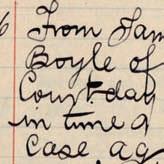 6 From Jam
Boyle of
Court day
in time a
case ag